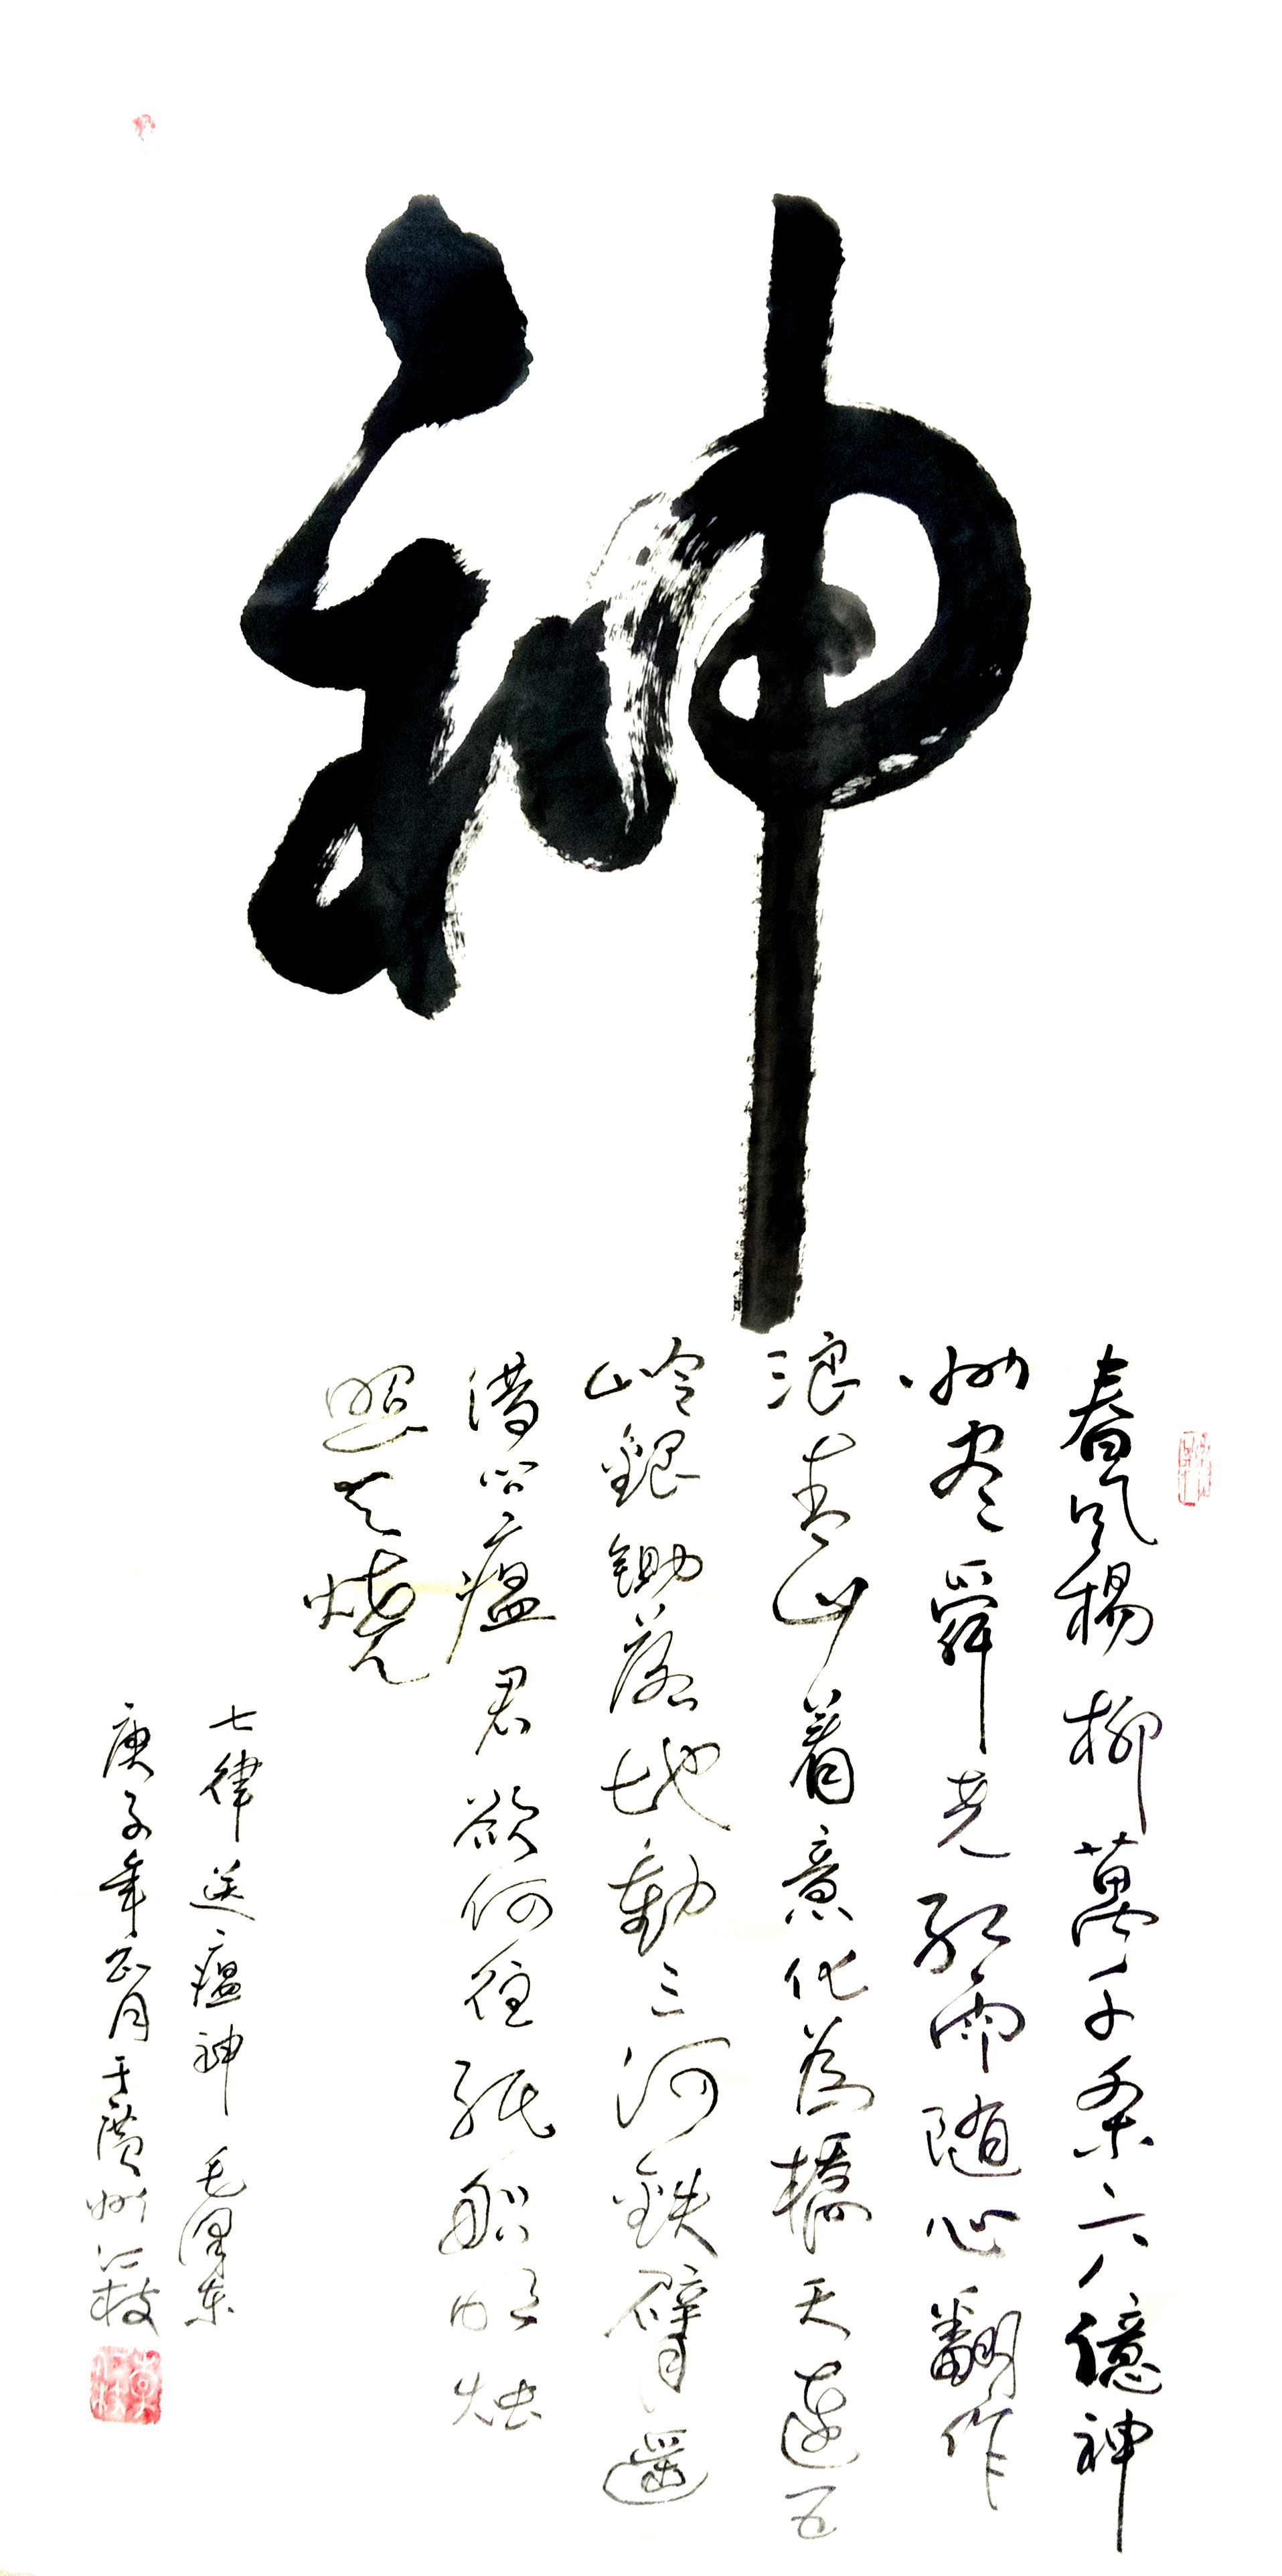 神
春风楊柳萬千条六億神
州尽舜尧红雨随心翻作
浪青山着意化為橋天连五
岭銀锄落地動三河鉄臂遥
借问瘟君欲何往纸船明烛
照天燒
七律送瘟神 毛澤东
庚子年正月于廣州